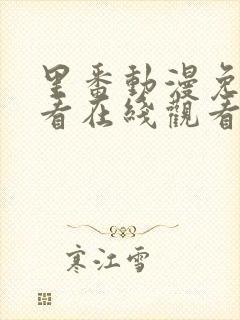 里番動漫免
看在綫觀看
寒江雪